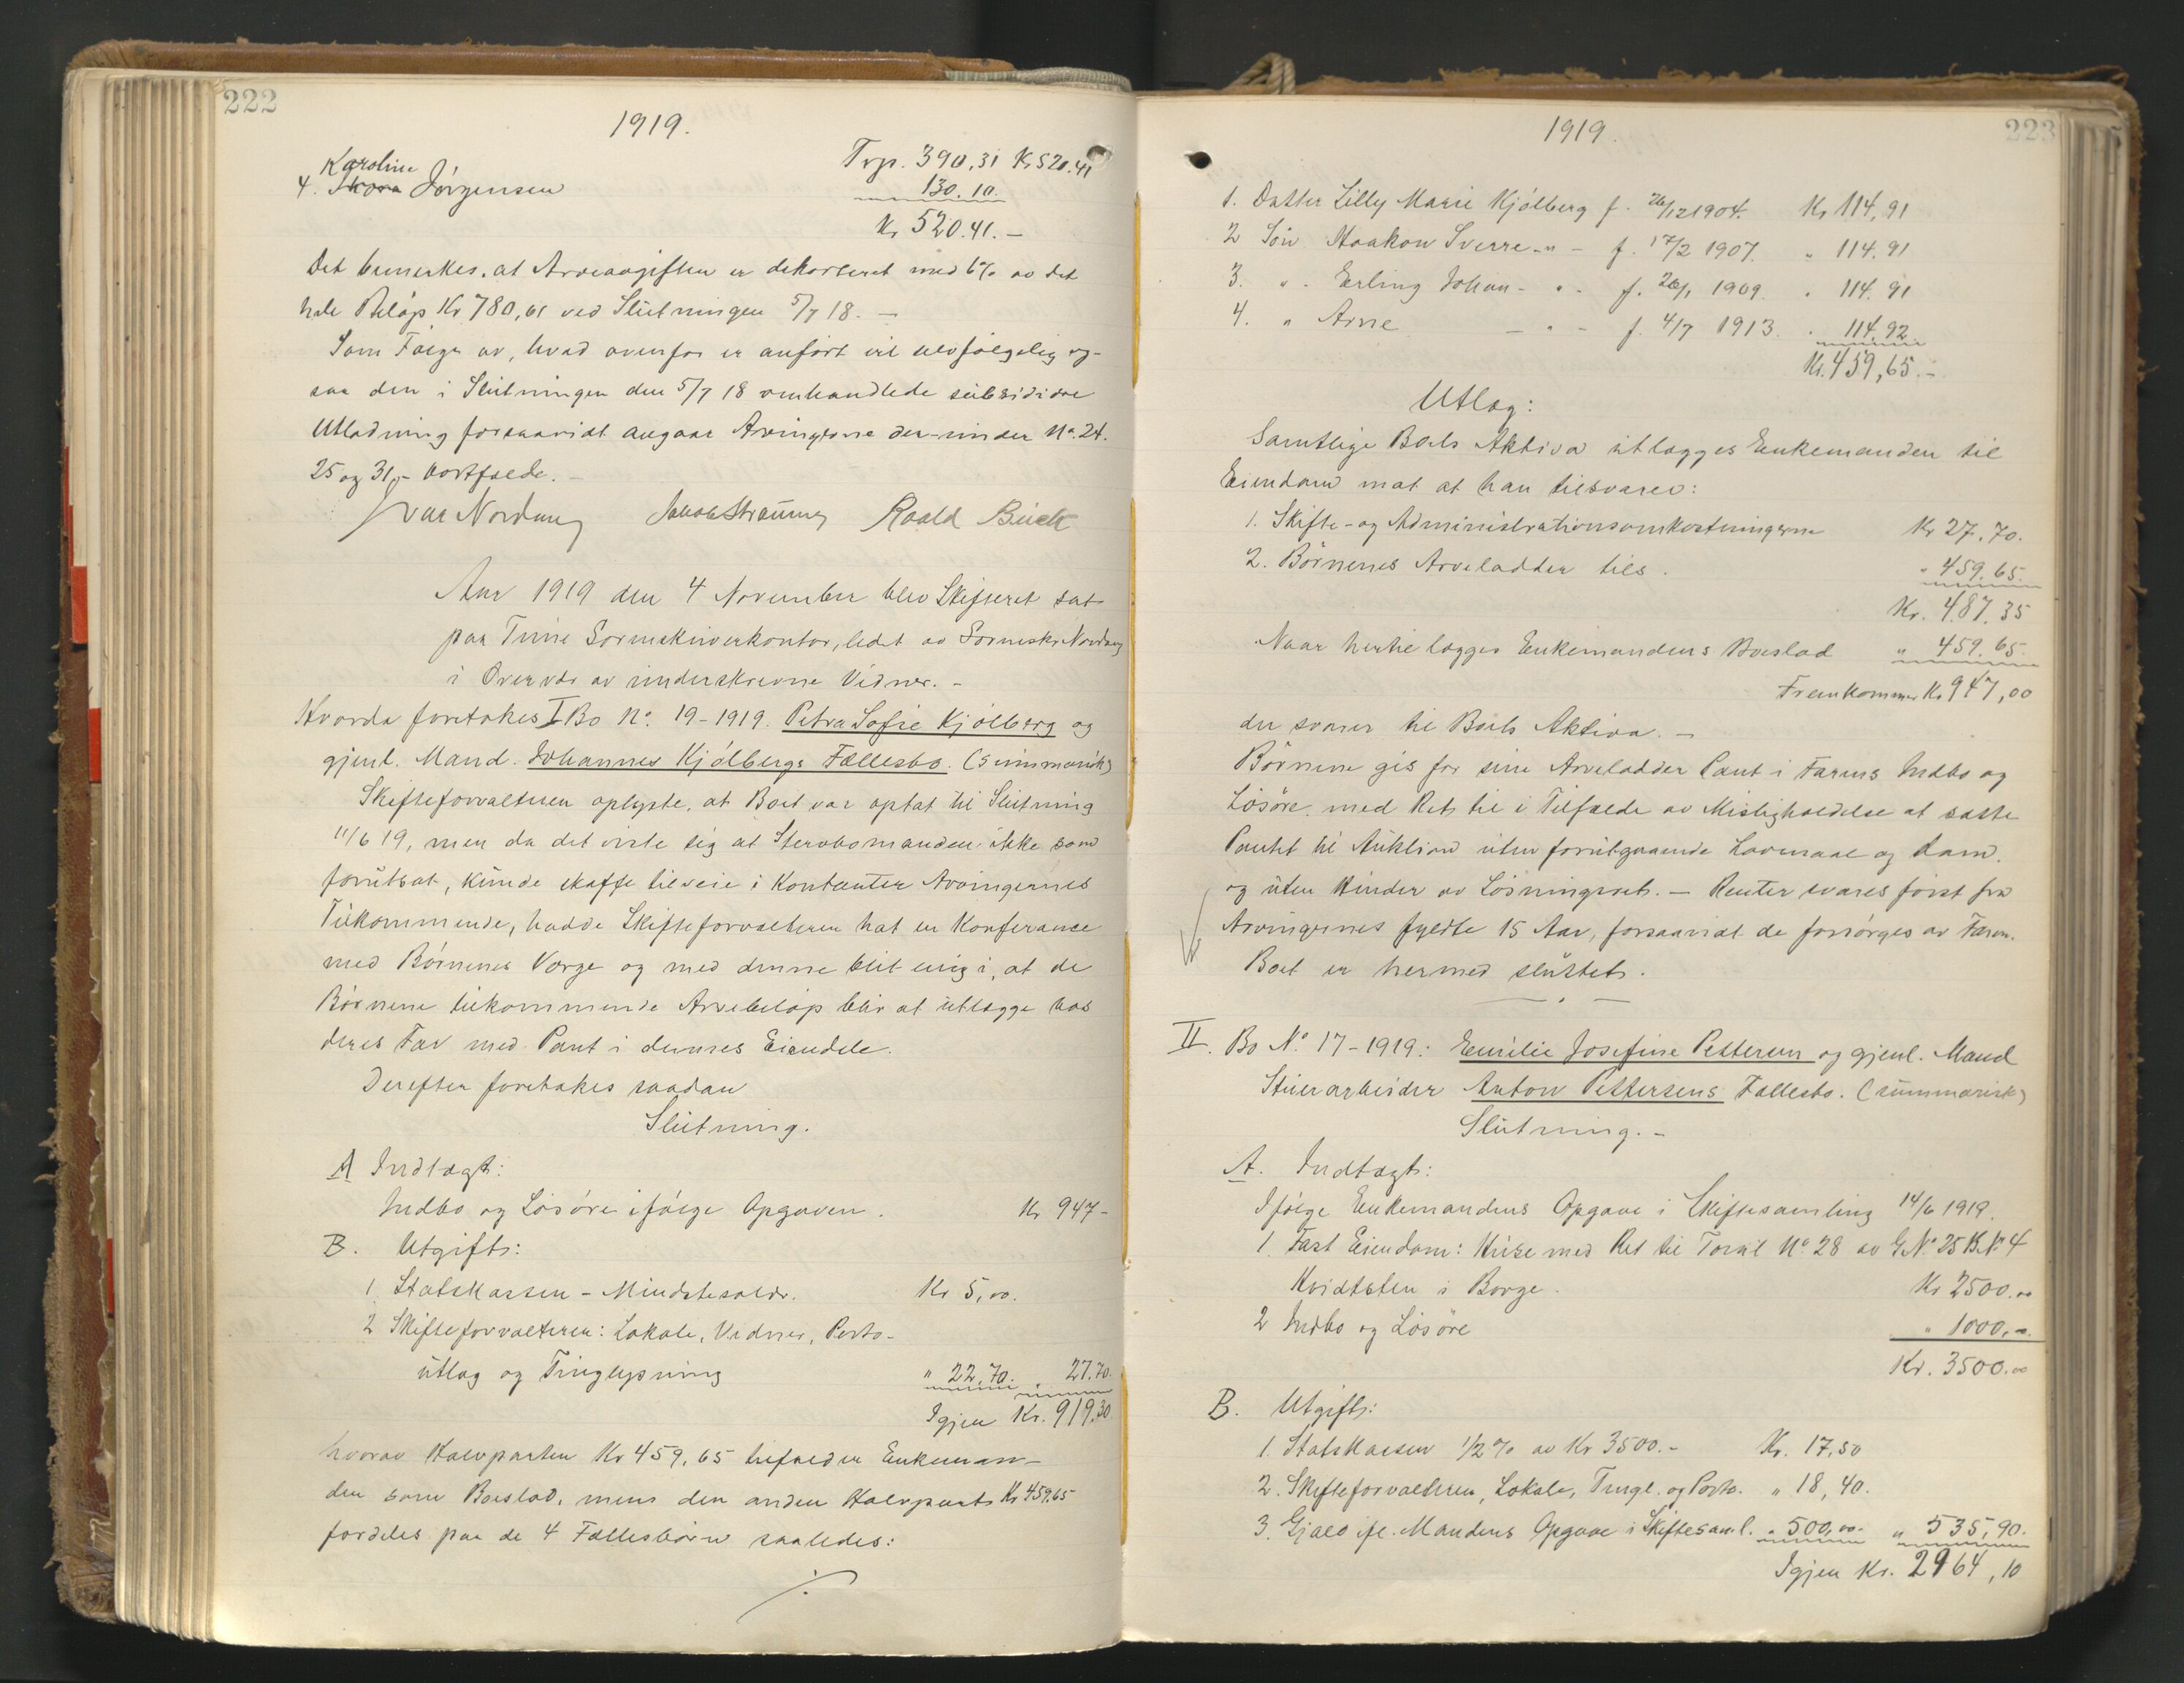 222
1919.
Karoline
4. Thora Jörgensen
Trp. 390,31 Kr 520.41
130.10.
Kr 520.41.-
Det bemerkes, at Arveavgiften er dekorteret med 6% av det
hele Belöp Kr 780,61 ved Slutningen 5/7 18. -
Som Fölge av, hvad ovenfor er anfört vil selvfölgelig og-
saa den i Slutningen den 5/7 18 omhandlede subsidiære
Utlodning forsaavidt angaar Arvingerne der-under No. 24.
25 og 31,- bortfalde. -
Ivar Nordang Roald Buch
Aar 1919 den 4 November blev Skifteret sat
paa Tune Sorenskriverkontor, ledet av Sorenskr. Nordang
i Overvær av underskrevne Vidner. -
Hvorda foretokes I Bo No. 19-1919. Petra Sofie Kjölberg og
gjenl. Mand Johannes Kjölbergs Fællesbo. (summarisk)
Skifteforvalteren oplyste, at Boet var optat til Slutning
11/6 19, men da det viste sig at Stervbomanden ikke som
forutsat, kunde skaffe tilveie i Kontanter Arvingernes
Tilkommende, hadde Skifteforvalteren hat en Konferance
med Börnenes Værge og med denne blit enig i, at de
Börnene tilkommende Arvebelöp blir at utlægge hos
deres Far med Pant i dennes Eiendele.
Derefter foretokes saadan
Slutning.
A Indtægt:
Indbo og Lösöre ifölge Opgaven. Kr 947-
B. Utgift:
1. Statskassen - Mindstesalær. Kr 5,00.
2 Skifteforvalteren: Lokale, Vidner, Porto-
utlæg og Tinglysning " 22,70. " 27.70.
Igjen Kr. 919,30
hvorav Halvparten Kr 459,65 tilfalder Enkeman-
den som Boeslod, mens den anden Halvpart Kr 459.65
fordeles paa de 4 Fællesbörn saaledes:
./.
1919.
223
1. Datter Lilly Marie Kjölberg f. 26/12 1904. Kr 114,91
2 Sön Haakon Sverre -"- f. 17/2 1907. " 114.91
3. " - Erling Johan - " - f. 26/1 1909. " 114.91
4. " Arne - " - f. 4/7 1913. " 114.92
Kr. 459,65.-
Utlæg:
Samtlige Boets Aktiva utlægges Enkemanden til
Eiendom mot at han tilsvarer:
1. Skifte- og Administrationsomkostningerne Kr 27,70.
2. Börnenes Arvelodder tils. " 459.65.
Kr. 487.35
Naar hertil lægges Enkemandens Boeslod " 459.65.
Fremkommer Kr 947,00
der svarer til Boets Aktiva. -
Börnene gis for sine Arvelodder Pant i Farens Indbo og
Lösöre, med Ret til i Tilfælde av Misligholdelse at sætte
Pantet til Auktion uten forutgaaende Lovmaal og Dom.
og uten Hinder av Lösningsret. - Renter svares först fra
Arvingernes fyldte 15 Aar, forsaavidt de forsörges av Faren.
Boet er hermed sluttet.
II. Bo No. 17-1919: Emilie Josefine Pettersen og gjenl. Mand
Stuerarbeider Anton Pettersens Fællesbo. (summarisk)
Slutning. -
A. Indtægt:
Ifölge Enkemandens Opgave i Skiftesamling 14/6 1919.
1. Fast Eiendom: Huse med Ret til Torvil No. 28 av G.No. 25 B.No. 4
Hvidtsten i Borge. Kr 2500.00
2 Indbo og Lösöre " 1000,00.
Kr. 3500.00
B. Utgift:
1. Statskassen 1/2% av Kr 3500.- Kr. 17,50
2. Skifteforvalteren, Lokale, Tingl. og Porto. " 18,40.
3. Gjæld ifl. Mandens Opgave i Skiftesaml. " 500,00. " 535,90.
Igjen Kr. 2964,10